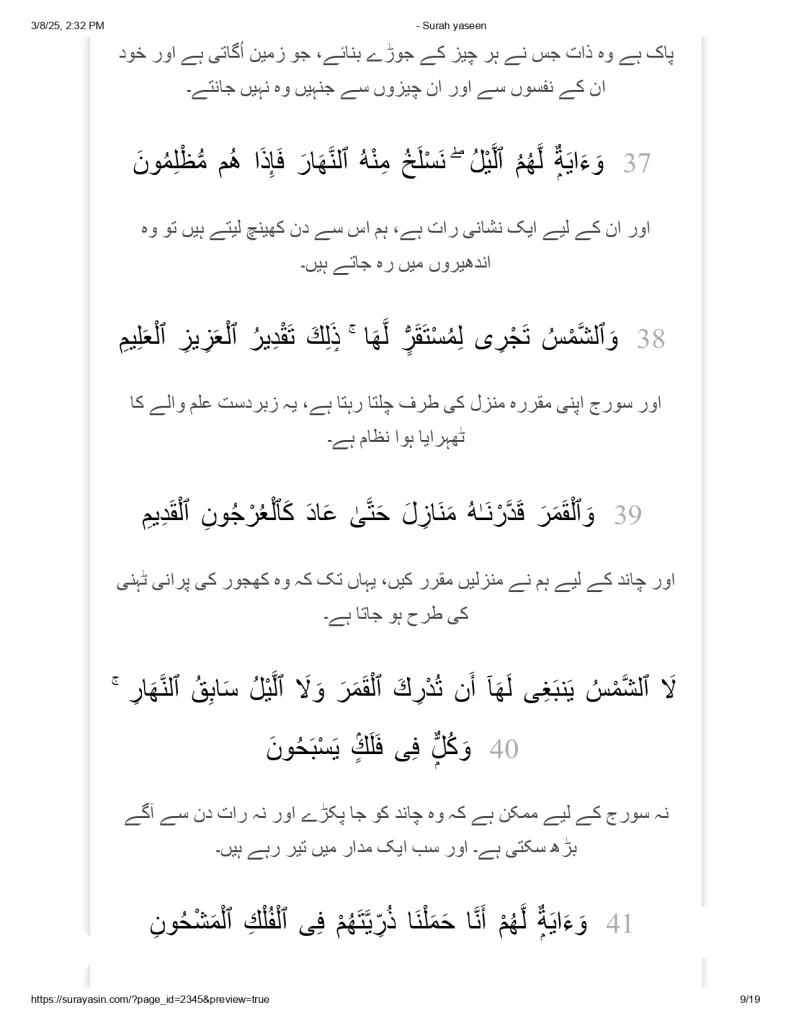 3/8/25, 2:32 PM
- Surah yaseen
پاک ہے وہ ذات جس نے ہر چیز کے جوڑے بنائے، جو زمین اُگاتی ہے اور خود
ان کے نفسوں سے اور ان چیزوں سے جنہیں وہ نہیں جانتے۔
37 وَءَايَةٌۭ لَّهُمُ ٱلَّيْلُ ۖ نَسْلَخُ مِنْهُ ٱلنَّهَارَ فَإِذَا هُم مُّظْلِمُونَ
اور ان کے لیے ایک نشانی رات ہے، ہم اس سے دن کھینچ لیتے ہیں تو وہ
اندھیروں میں رہ جاتے ہیں۔
38 وَٱلشَّمْسُ تَجْرِى لِمُسْتَقَرٍّۢ لَّهَا ۚ ذَٰلِكَ تَقْدِيرُ ٱلْعَزِيزِ ٱلْعَلِيمِ
اور سورج اپنی مقررہ منزل کی طرف چلتا رہتا ہے، یہ زبردست علم والے کا
ٹھہرایا ہوا نظام ہے۔
39 وَٱلْقَمَرَ قَدَّرْنَـٰهُ مَنَازِلَ حَتَّىٰ عَادَ كَٱلْعُرْجُونِ ٱلْقَدِيمِ
اور چاند کے لیے ہم نے منزلیں مقرر کیں، یہاں تک کہ وہ کھجور کی پرانی ٹہنی
کی طرح ہو جاتا ہے۔
لَا ٱلشَّمْسُ يَنۢبَغِى لَهَآ أَن تُدْرِكَ ٱلْقَمَرَ وَلَا ٱلَّيْلُ سَابِقُ ٱلنَّهَارِ ۚ
40 وَكُلٌّۭ فِى فَلَكٍۢ يَسْبَحُونَ
نہ سورج کے لیے ممکن ہے کہ وہ چاند کو جا پکڑے اور نہ رات دن سے آگے
بڑھ سکتی ہے۔ اور سب ایک مدار میں تیر رہے ہیں۔
41 وَءَايَةٌۭ لَّهُمْ أَنَّا حَمَلْنَا ذُرِّيَّتَهُمْ فِى ٱلْفُلْكِ ٱلْمَشْحُونِ
https://surayasin.com/?page_id=2345&preview=true
9/19